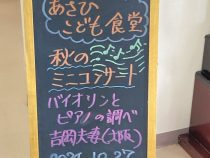 あさひ
こども食堂
秋の
ミニコンサート
バイオリンと
ピアノの調べ
吉岡夫妻(大阪)